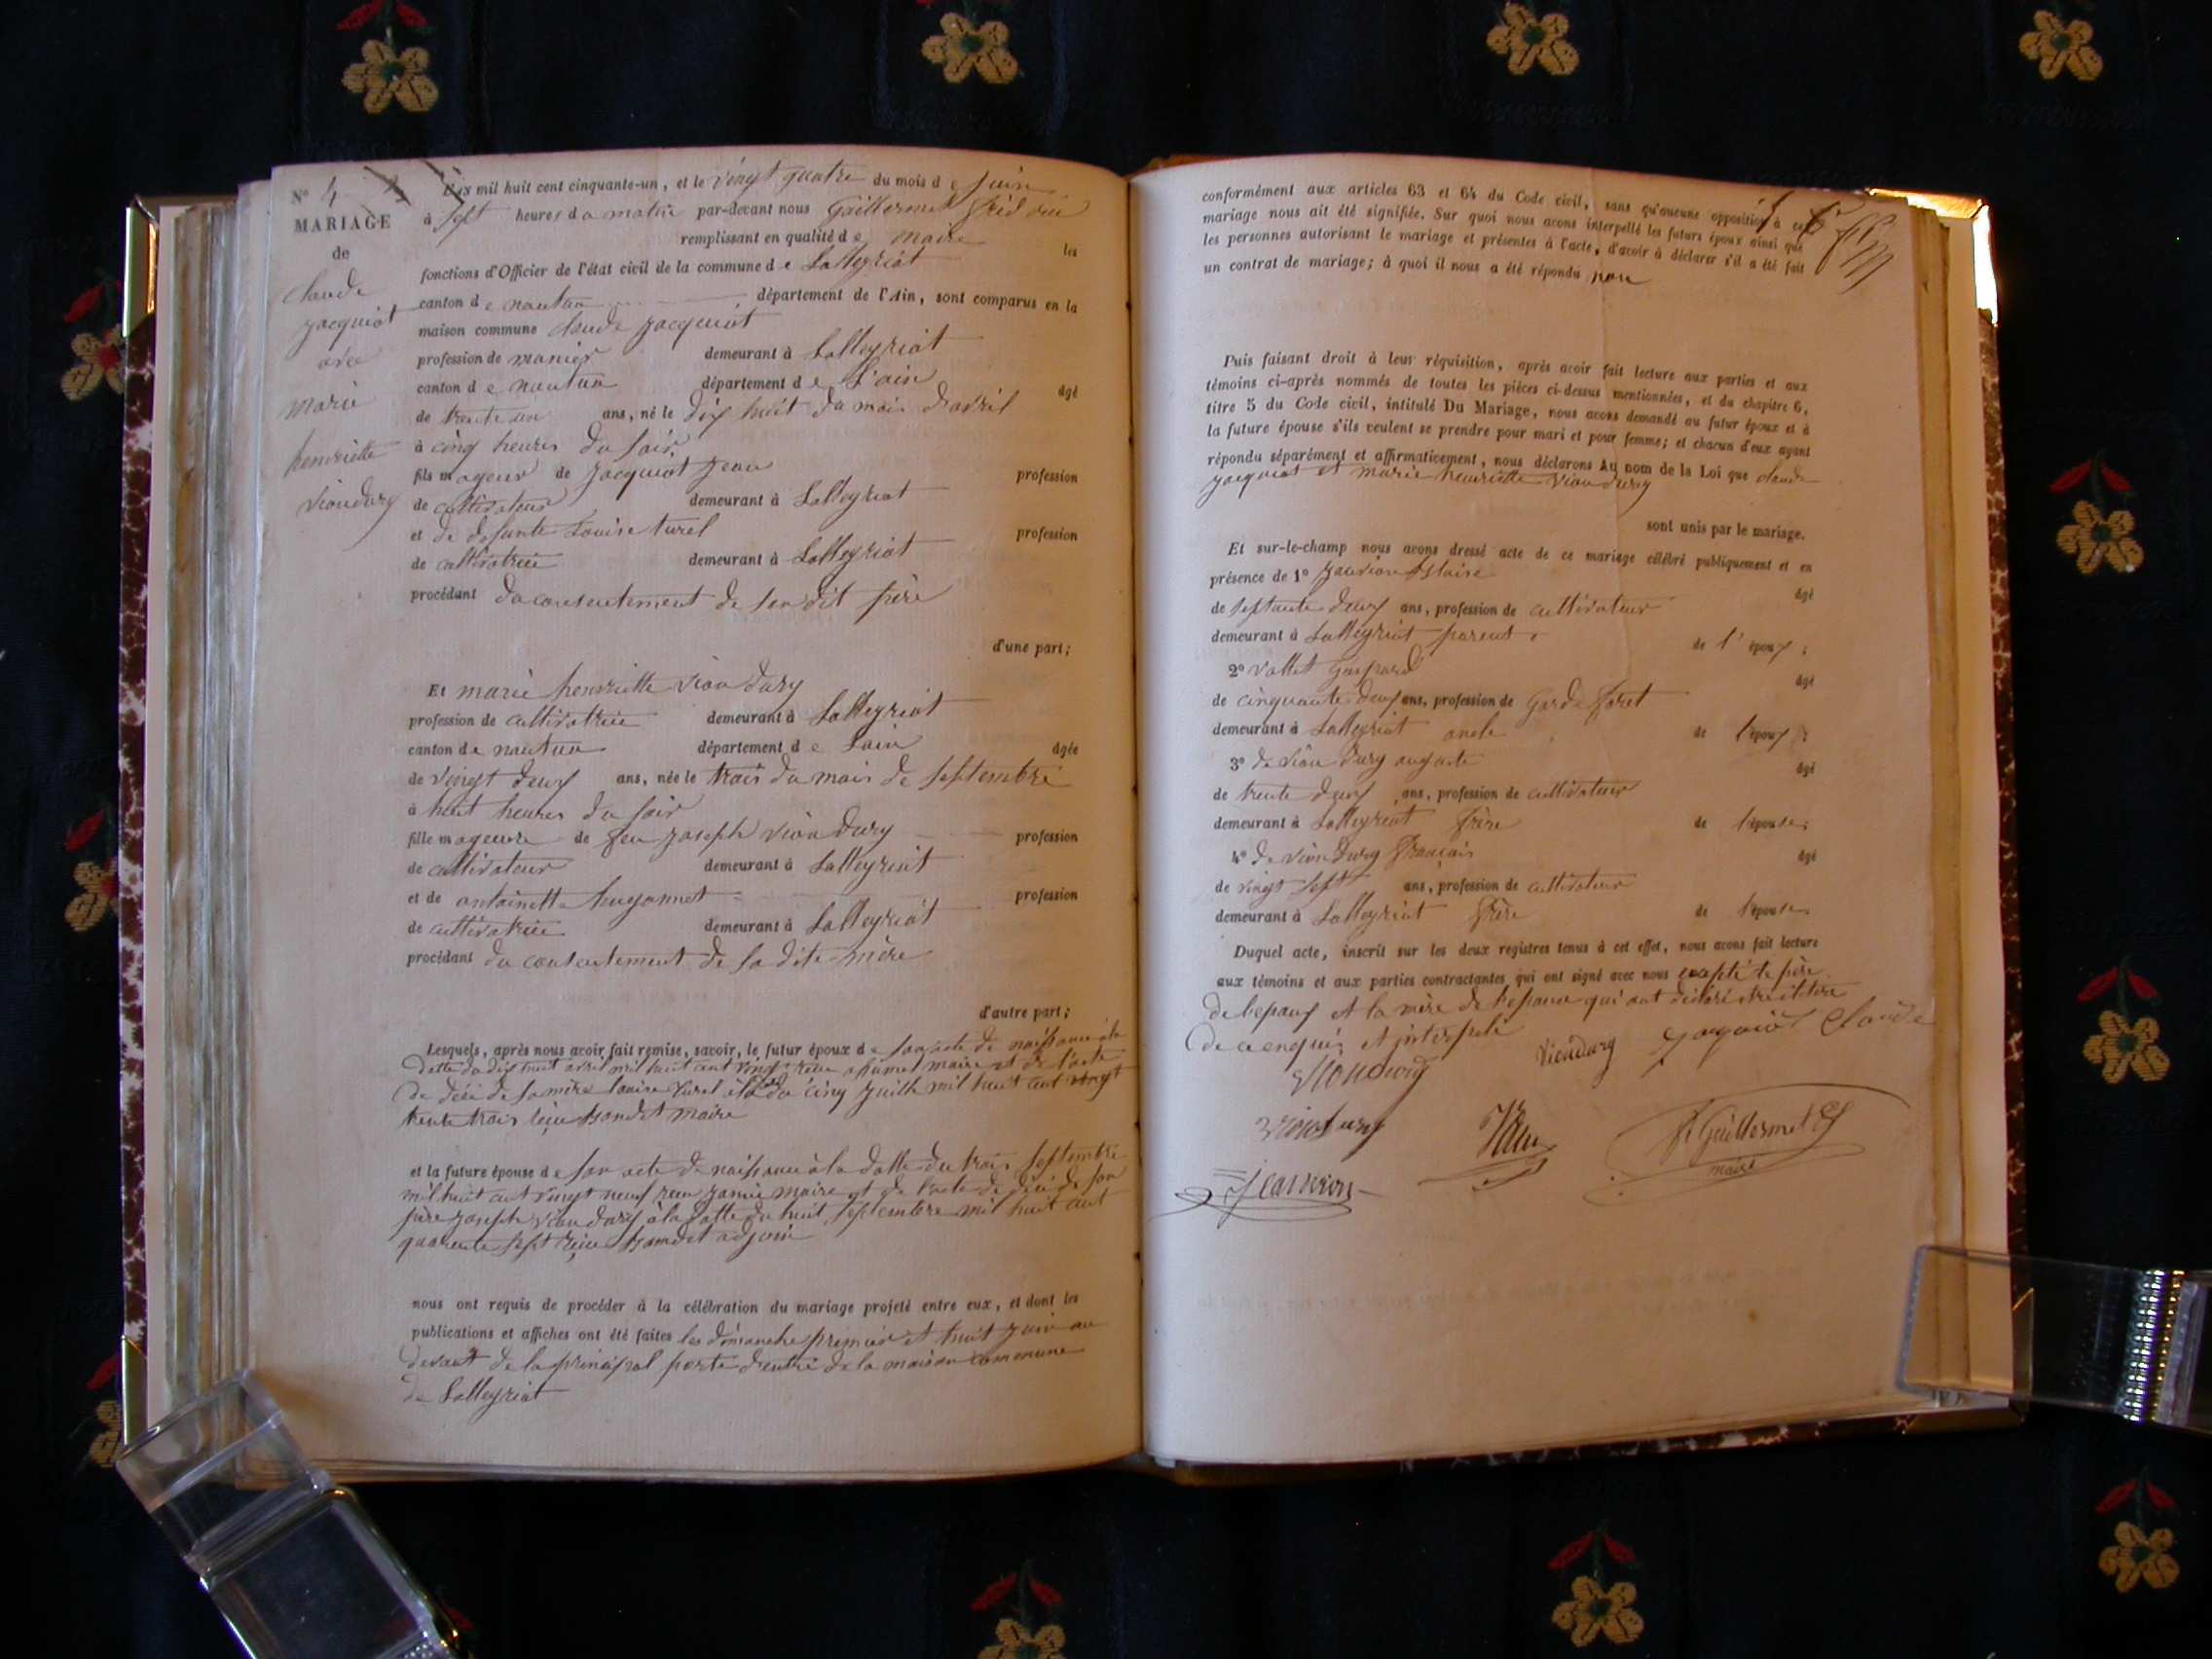 N° 4
MARIAGE
de
claude
jacquiot
avec
marie
henriette
viondury
L'an mil huit cent cinquante-un, et le vingt quatre du mois de juin
à sept heures du matin par-devant nous Guillermet
remplissant en qualité de maire les
fonctions d'Officier de l'état civil de la commune de Lalleyriat
canton de nantua département de l'Ain, sont comparus en la
maison commune claude jacquiot
profession de demeurant à Lalleyriat
canton de nantua département de L'ain âgé
de trente un ans, né le dix huit du mois d'avril
à cinq heures du soir
fils mageur de jacquiot jean profession
de cultivateur demeurant à Lalleyriat
et de defunte Louise turel profession
de cultivatrice demeurant à Lalleyriat
procédant du consentement de son dit père
d'une part;
Et marie henriette vion dury
profession de cultivatrice demeurant à Lalleyriat
canton de nantua département de Lain âgée
de vingt deux ans, née le trois du mois de septembre
à huit heures du soir
fille mageure de feu joseph vion dury profession
de cultivateur demeurant à Lalleyriat
et de antoinette hugonnet profession
de cultivatrice demeurant à Lalleyriat
procédant du consentement de sa dite mère
d'autre part;
Lesquels, après nous avoir fait remise, savoir, le futur époux de son acte de naissance à la
datte du dix huit avril mil huit cent vingt maire et de l'acte
de déсé de sa mère louise turel du cinq juillet mil huit cent vingt
trente trois reçu maire
et la future épouse de son acte de naissance à la datte du trois septembre
mil huit cent vingt neuf maire et de l'acte de décé de son
père joseph vion dury à la datte du huit septembre mil huit cent
quarente sept reçu adjoin
nous ont requis de procéder à la célébration du mariage projeté entre eux, et dont les
publications et affiches ont été faites les dimanche premier et huit juin au
devant de la principal porte d'entré de la maison commune
de Lalleyriat
conformément aux articles 63 et 64 du Code civil, sans qu'aucune opposition à ce
mariage nous ait été signifiée. Sur quoi nous avons interpellé les futurs époux ainsi que
les personnes autorisant le mariage et présentes à l'acte, d'avoir à déclarer s'il a été fait
un contrat de mariage; à quoi il nous a été répondu non
Puis faisant droit à leur réquisition, après avoir fait lecture aux parties et aux
témoins ci-après nommés de toutes les pièces ci-dessus mentionnées, et du chapitre 6,
titre 5 du Code civil, intitulé Du Mariage, nous avons demandé au futur époux et à
la future épouse s'ils veulent se prendre pour mari et pour femme; et chacun d'eux ayant
répondu séparément et affirmativement, nous déclarons Au nom de la Loi que claude
jacquiot et marie henriette vion dury
sont unis par le mariage.
Et sur-le-champ nous avons dressé acte de ce mariage célébré publiquement et en
présence de 1° âgé
de septante deux ans, profession de cultivateur
demeurant à Lalleyriat parent de l'époux;
2° vallet gaspard âgé
de cinquante deux ans, profession de garde foret
demeurant à Lalleyriat oncle de l'époux;
3° de vion dury auguste âgé
de trente deux ans, profession de cultivateur
demeurant à Lalleyriat frère de l'épouse;
4° de vion dury français âgé
de vingt sept ans, profession de cultivateur
demeurant à Lalleyriat frère de l'épouse
Duquel acte, inscrit sur les deux registres tenus à cet effet, nous avons fait lecture
aux témoins et aux parties contractantes qui ont signé avec nous le père
de lepoux et la mère de lepouse qui ont
de ce enquis et interpelé
viondury jaquiot Claude
Guillermet
maire